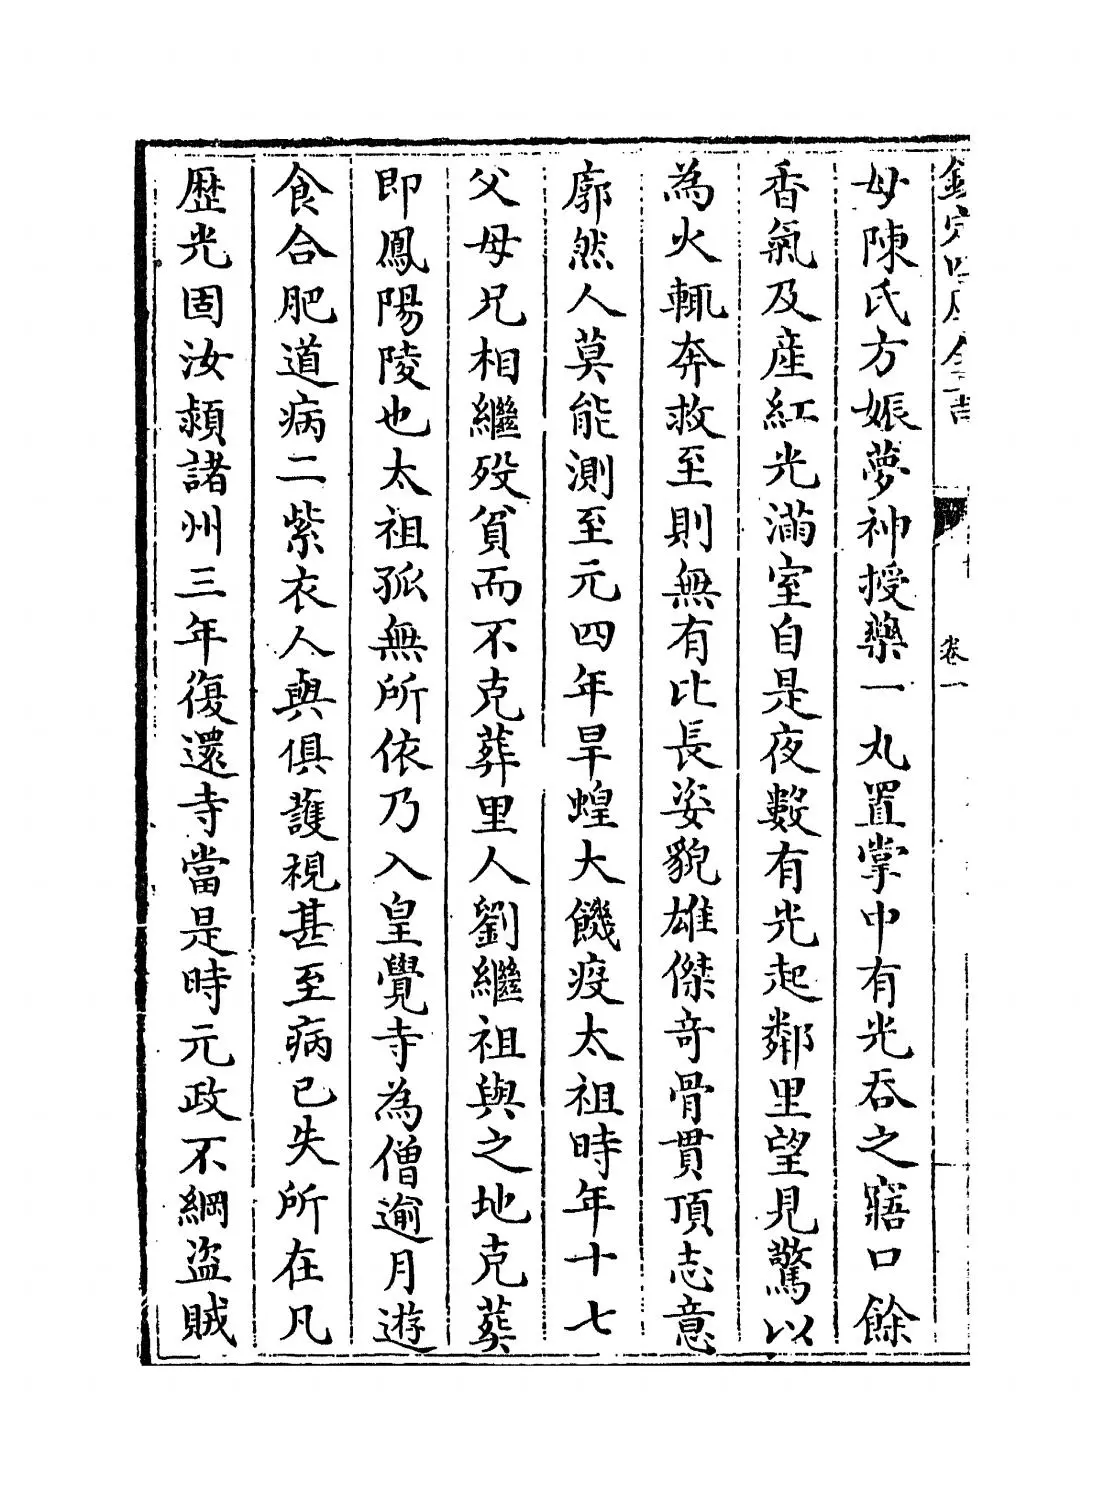 母陳氏方娠夢神授藥一丸置掌中有光吞之寤口餘
香氣及産紅光滿室自是夜數有光起鄰里望見驚以
為火輒奔救至則無有比長姿貌雄傑奇骨貫頂志意
廓然人莫能測至元四年旱蝗大饑疫太祖時年十七
父母兄相繼歿貧而不克葬里人劉繼祖與之地克葬
即鳳陽陵也太祖孤無所依乃入皇覺寺為僧逾月遊
食合肥道病二紫衣人與俱護視甚至病已失所在凡
歴光固汝潁諸州三年復還寺當是時元政不綱盗賊
卷一